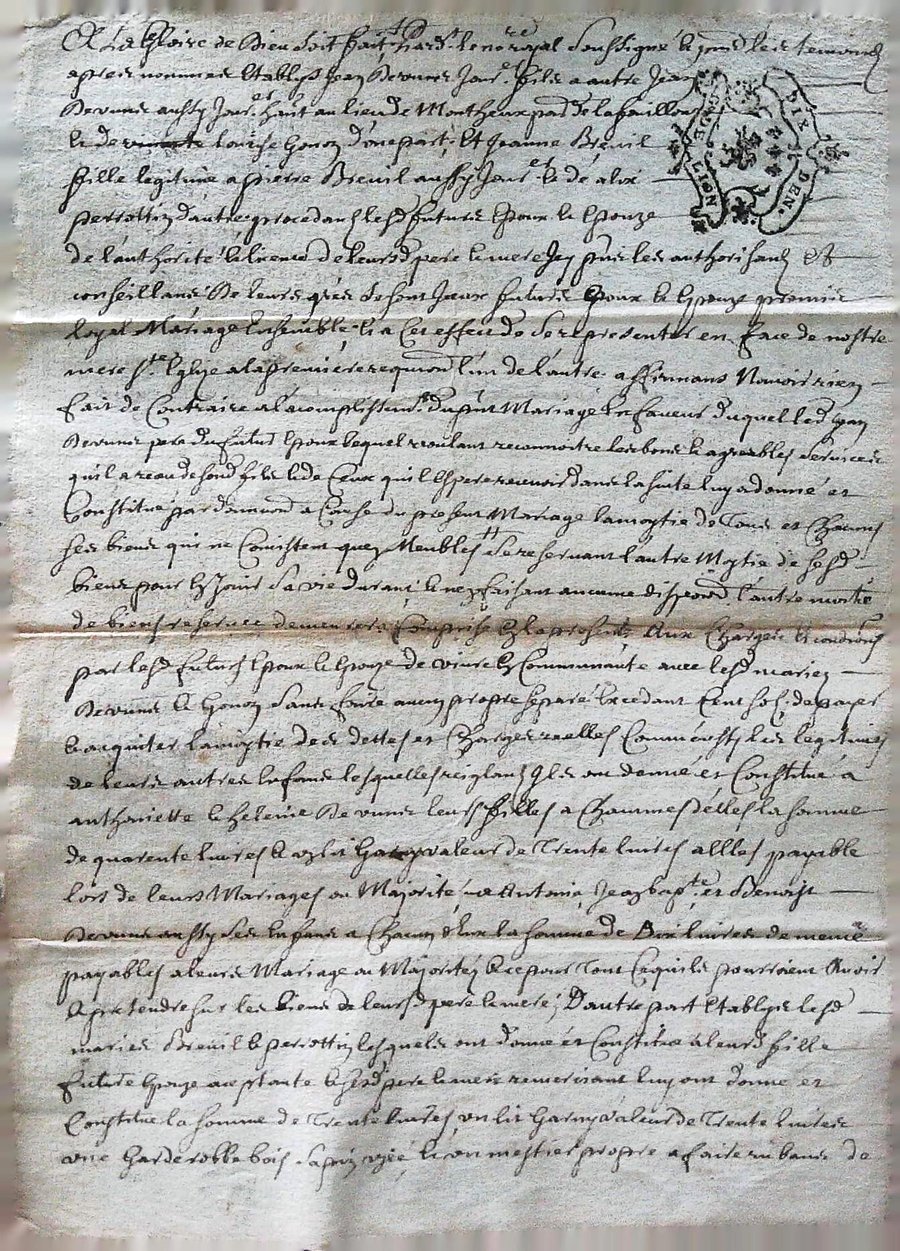 A La Gloire de Dieu soit fait Pard.t le no.re royal soussigné & pnts les temoins
apres nommes Establis Jean Derunes Jour.er fils a autre Jean
Derunes aussy Jour.er hait au lieu de Montheux par de la
& de Louise Gonon d'une part, Et Jeanne Breuil
fille legitime a pierre Breuil aussy Jour.er & de
perrottin d'autre, procedans lesd futurs Epoux & Epouze
de l'authorité & licence de leursd pere & mere Icy pnts les authorisans Et
conseillans De leurs gres se sont Iceux futurs Epoux & Epouze promis
loyal Mariage Ensemble, & a Cet effect de se representer en face de nostre
mere S.te Eglise a la premiere requion l'un de l'autre affirmans N'avoir rien
fait de Contraire a l'acomplissem.t du pnt Mariage En faveur duquel led Jean
Derunes pere du futur Epoux lequel voulant reconnoitre les bons & agreables services
qu'il a receu de sond fils & de Ceux qu'il Espere recevoir dans la suite luy a donné et
Constitué par donnaon a Cause du present Mariage la moytie de Tous et Chacuns
ses biens qui ne Consistent qu'en Meubles se reservant l'autre Moytie de sesd
biens pour En Jouir sa vie durant & n'en faisant aucune dispoon l'autre moitié
de biens reservee demeurera Comprise En la presente Aux Charges & conditions
par lesd futurs Epoux & Epouze de vivre En Communauté avec lesd mariez
Derunes & Gonon sans faire aucun propre separé Excedant Cent sols, de payer
& acquiter la moytie des dettes et Charges reelles Comm' aussy les legitimes
de leurs autres Enfans lesquelles reiglans Ils ont donné et Constitué a
anthoinette & helenne Derunes leurs filles a Chacunes d'elles la somme
de quarente livres & un lit Garny valeur de Trente livres allles payable
lors de leurs Mariages ou Majorité, a Antoine, Jean bap.te et Benoist
Derunes aussy ses Enfans a Chacun d'Eux la somme de Dix livres de meme
payables a leurs Mariage ou Majorités & ce pour Tout Ce qu'ils pourroient Avoir
& pretendre sur les biens de leursd pere & mere; D'autre part Etablys lesd
mariés Breuil & perrottin lesquels ont donné et Constitué a leurd fille
future Epouze aceptante & sesd pere & mere remerciant luy ont donné et
Constitué la somme de Trente livres, un lit Garny valeur de Trente livres
une Garderobbe bois sapin uzée & un mestier propre a faire rubans de